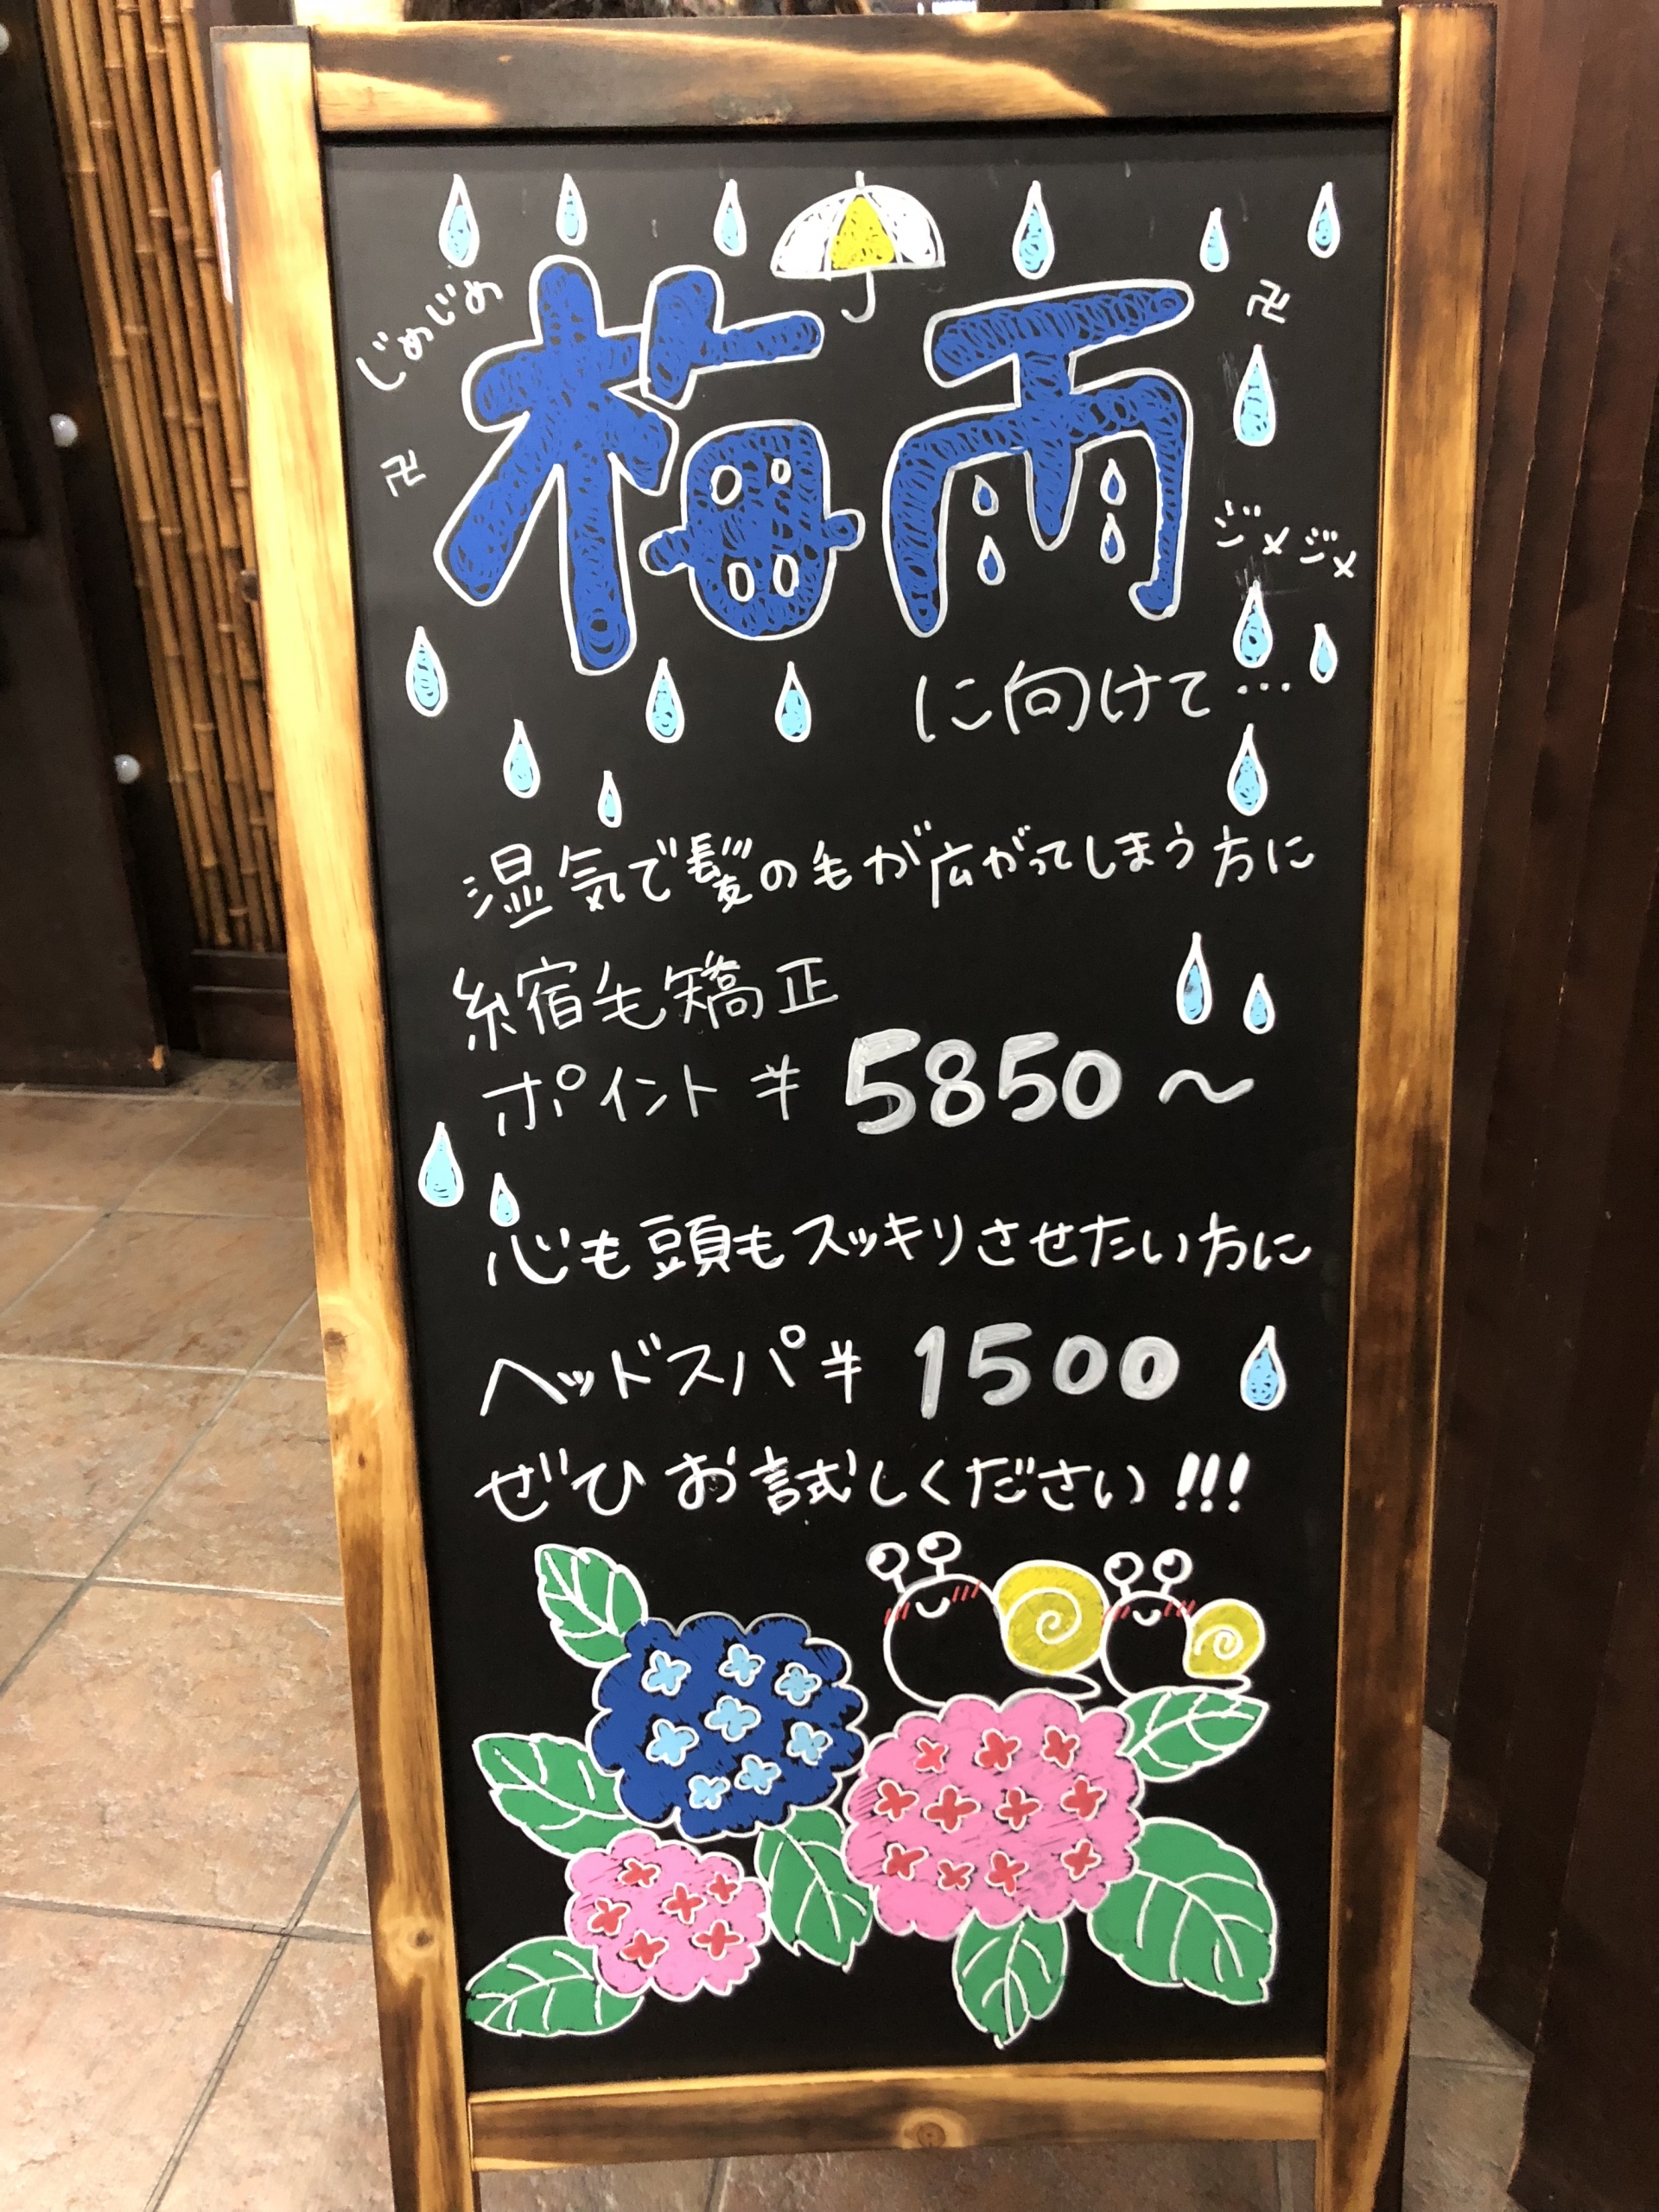 じめじめ
卍
梅雨
卍
ジメジメ
に向けて…
湿気で髪の毛が広がってしまう方に
縮毛矯正
ポイント ¥5850〜
心も頭もスッキリさせたい方に
ヘッドスパ ¥1500
ぜひお試しください!!!